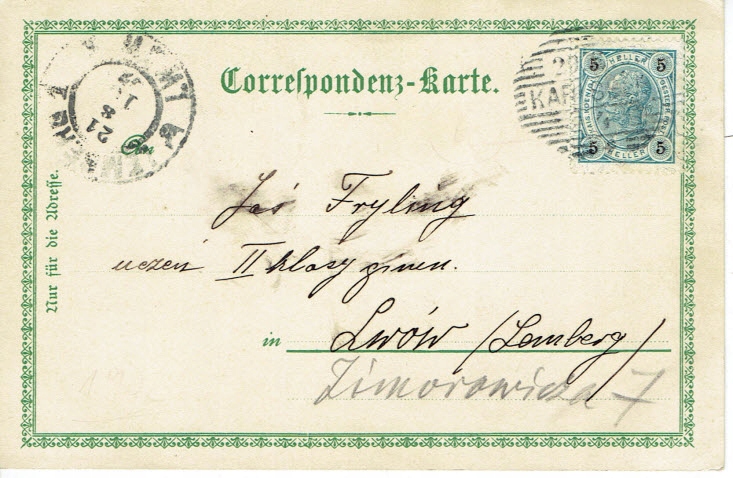 Correspondenz-Karte.
5 HELLER 5
5 HELLER 5
An
Nur für die Adresse.
Jaś Fryling
uczeń II klasy gimn.
in Lwów (Lemberg)
Zimorowicza 7